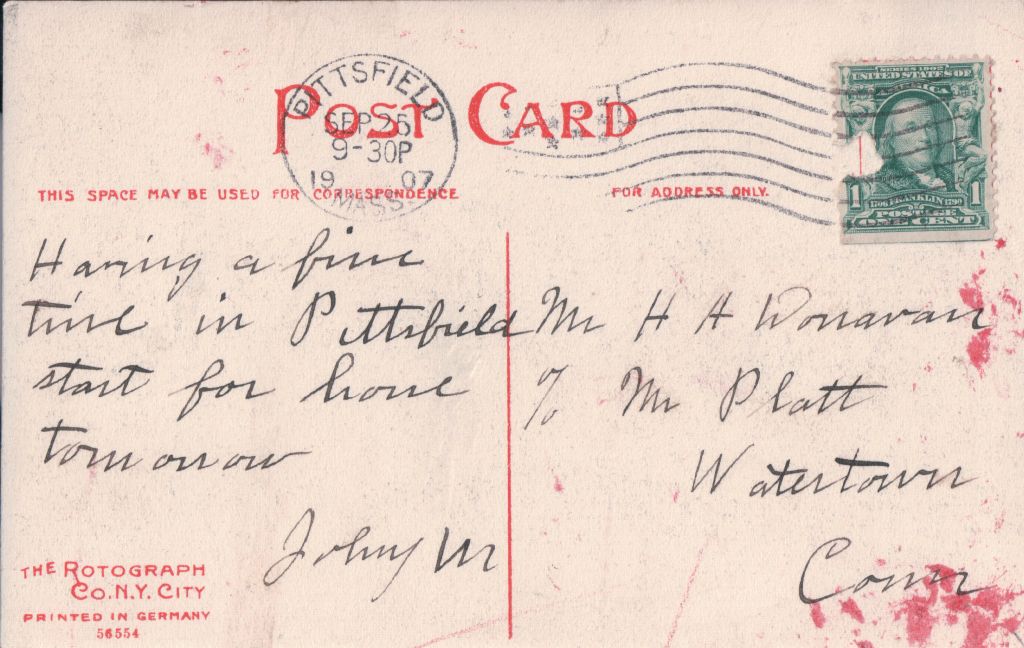 POST CARD
PITTSFIELD
SEP 25
9-30P
1907
MASS.
SERIES 1902
UNITED STATES OF
AMERICA
1 1706 FRANKLIN 1790 1
POSTAGE
ONE CENT
THIS SPACE MAY BE USED FOR CORRESPONDENCE
FOR ADDRESS ONLY.
Having a fine
time in Pittsfield
start for home
tomorrow
John M
Mr H H Donavan
c/o Mr Platt
Watertown
Conn
THE ROTOGRAPH
CO. N.Y. CITY
PRINTED IN GERMANY
56554